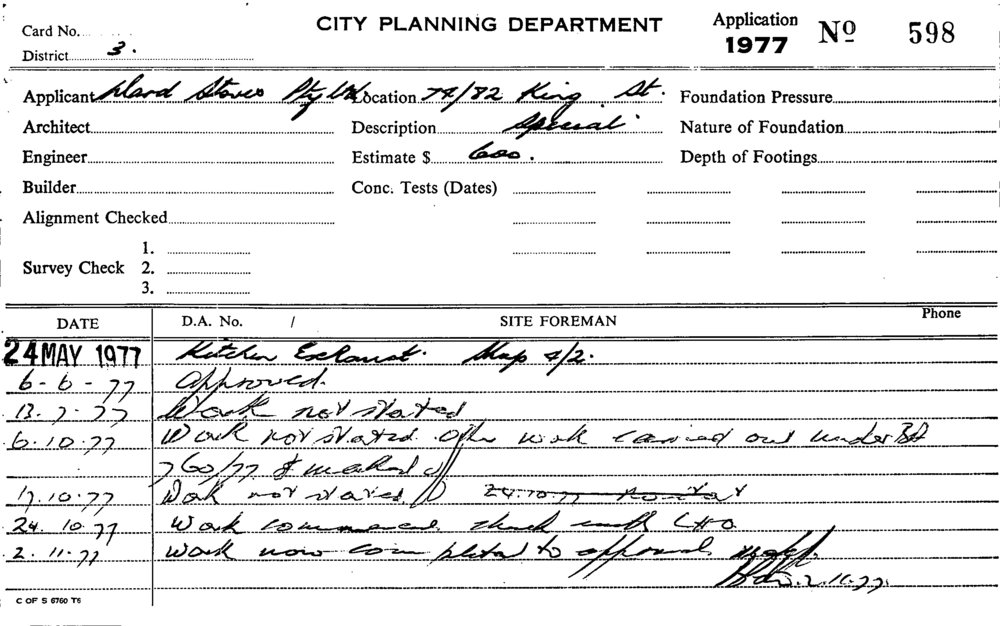 CITY PLANNING DEPARTMENT
Application
1977 Nº 598
Card No.
District 3.
Applicant Stores Pty Ltd. Location 74/82 King St. Foundation Pressure
Architect Description Special Nature of Foundation
Engineer Estimate $ 600. Depth of Footings
Builder Conc. Tests (Dates)
Alignment Checked
1.
Survey Check 2.
3.
DATE D.A. No. / SITE FOREMAN Phone
24 MAY 1977 Kitchen Exhaust. Map 4/2.
6-6-77 Approved.
13.7.77 Work not stated
6.10.77 Work not stated other work carried out under BA
760/77 & marked off
17.10.77 Work not stated 24.10.77
24.10.77 Work commenced, check with
2.11.77 Work now completed to approval.
2.11.77.
C OF S 6760 T6